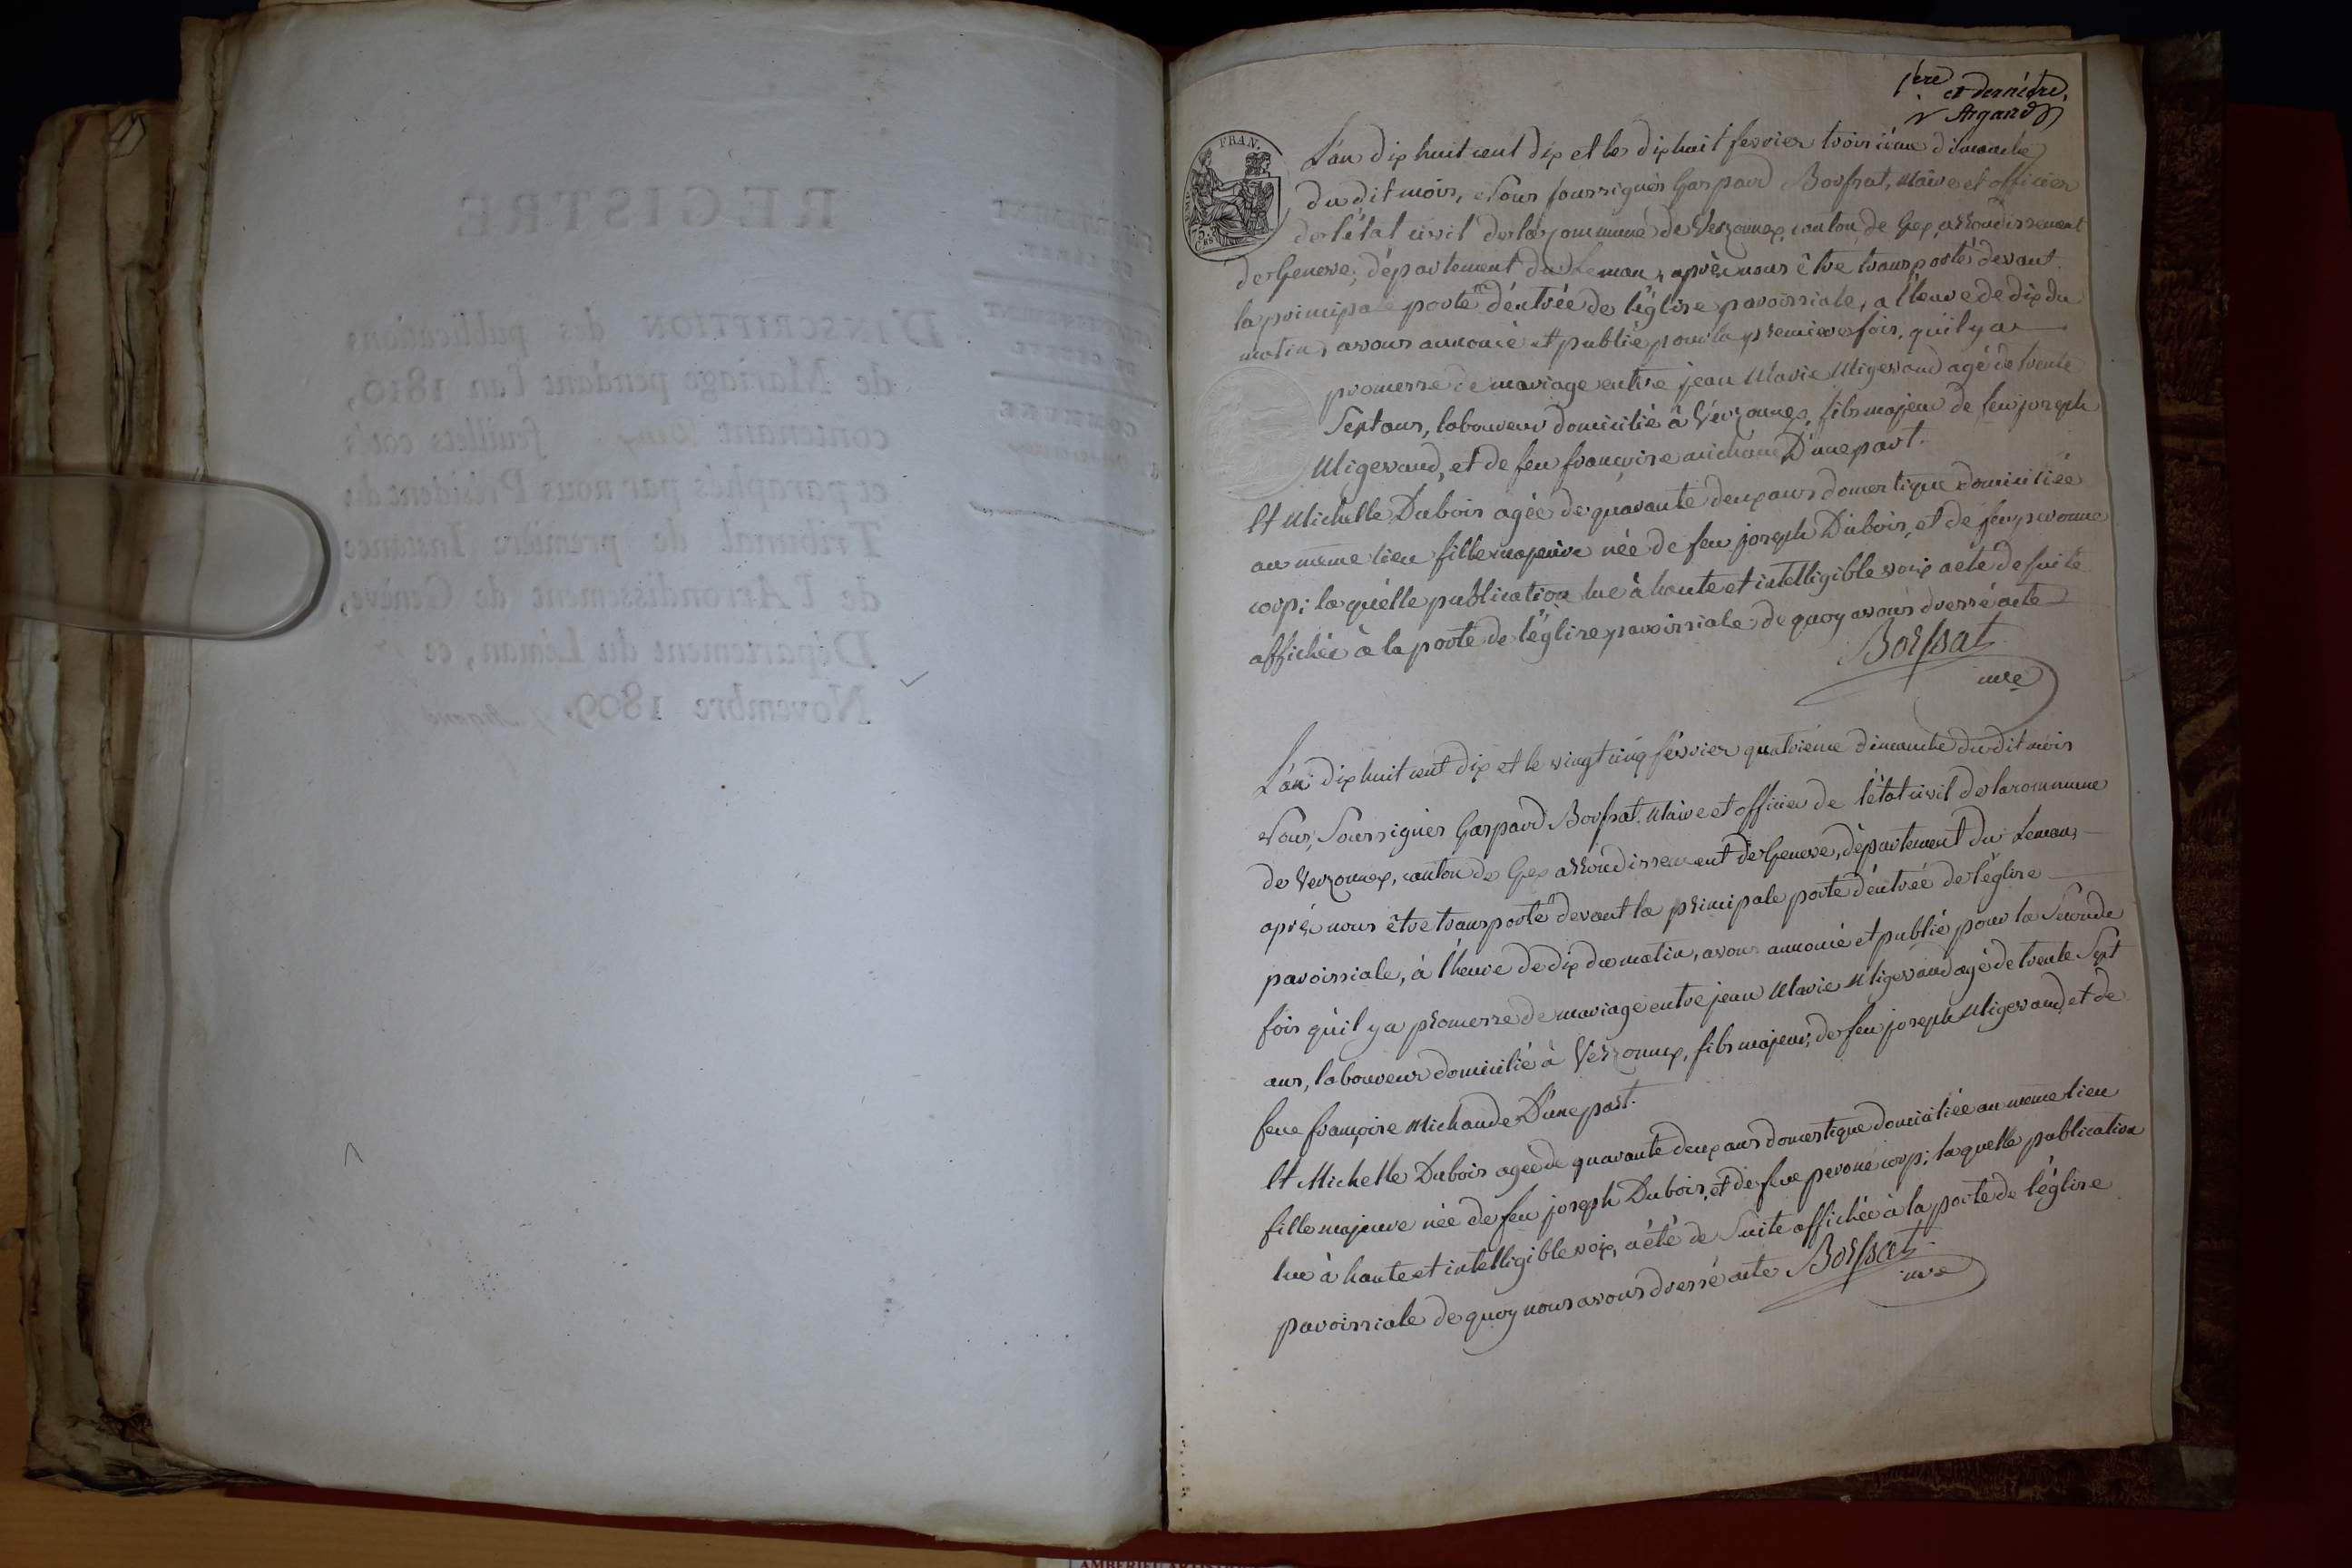 REGISTRE
D'INSCRIPTION des publications
de Mariage pendant l'an 1810,
contenant feuillets cotés
et paraphés par nous Président du
Tribunal de première Instance
de l'Arrondissement de Genève,
Département du Léman, ce
Novembre 1809.
1ere et dernière.
Argand
FRAN.
L'an dix huit cent dix et le dix huit fevrier troisième dimanche
du dit mois, Nous soussignés Gaspard Borssat, Maire et officier
de l'état civil de la commune de Versonnex, canton de Gex, arrondissement
de Geneve, département du Leman, après nous être transporté devant
la principale porte d'entrée de l'église paroissiale, a l'heure de dix du
matin, avons annoncé et publié pour la premiere fois, qu'il y a
promesse de mariage entre jean Marie Migevand agé de trente
Sept ans, laboureur domicilié à Versonnex, fils majeur de feu joseph
Migevand, et de feu françoise michaud D'une part.
Et Michelle Dubois agée de quarante deux ans domestique domiciliée
au meme lieu fille majeure née de feu joseph Dubois, et de feu peronne
corp; laquelle publication lue à haute et intelligible voix a été de suite
affichée a la porte de l'église paroissiale de quoy avons dressé acte
Borssat
mre
L'an dix huit cent dix et le vingt cinq février quatrième dimanche du dit mois
Nous, Soussignés Gaspard Borssat, Maire et officier de l'état civil de la commune
de Versonnex, canton de Gex arrondissement de Geneve, département du Leman,
après nous être transporté devant la principale porte d'entrée de l'église
paroissiale, à l'heure de dix du matin, avons annoncé et publié pour la Seconde
fois qu'il y a promesse de mariage entre jean Marie Migevand agé de trente Sept
ans, laboureur domicilié à Versonnex, fils majeur, de feu joseph Migevand, et de
feue françoise Michaude D'une part.
Et Michelle Dubois agée de quarante deux ans domestique domiciliée au meme lieu
fille majeure née de feu joseph Dubois, et de feue perone corp; laquelle publication
lue à haute et intelligible voix, a été de Suite affichée à la porte de l'église
paroissiale de quoy nous avons dressé acte Borssat
mre